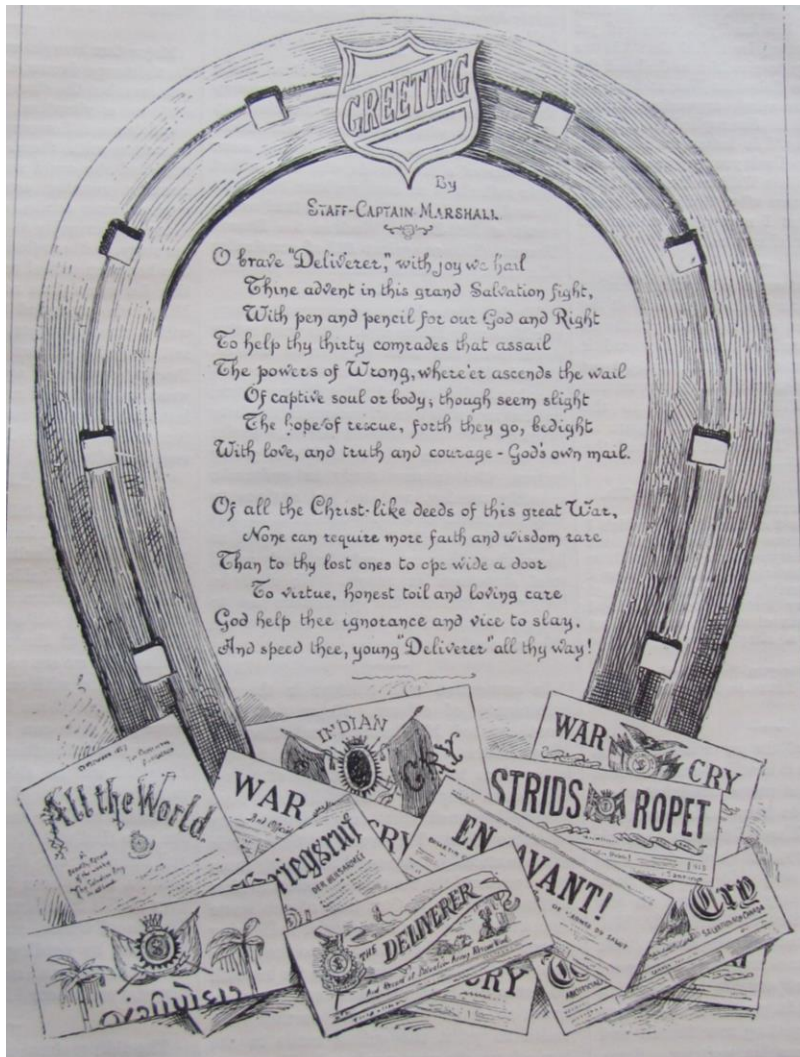 GREETING
By
STAFF-CAPTAIN MARSHALL
O brave "Deliverer," with joy we hail
Thine advent in this grand Salvation fight,
With pen and pencil for our God and Right
To help thy thirty comrades that assail
The powers of Wrong, where'er ascends the wail
Of captive soul or body; though seem slight
The hope of rescue, forth they go, bedight
With love, and truth and courage - God's own mail.
Of all the Christ-like deeds of this great War,
None can require more faith and wisdom rare
Than to thy lost ones to ope wide a door
To virtue, honest toil and loving care
God help thee ignorance and vice to slay,
And speed thee, young "Deliverer" all thy way!
All the World.
INDIAN
CRY
WAR
CRY
WAR
CRY
STRIDS ROPET
Kriegsruf
DER HEILSARMEE
EN AVANT!
DE L'ARMÉE DU SALUT
Cry
THE DELIVERER
And Record of Salvation Army Rescue Work
CRY